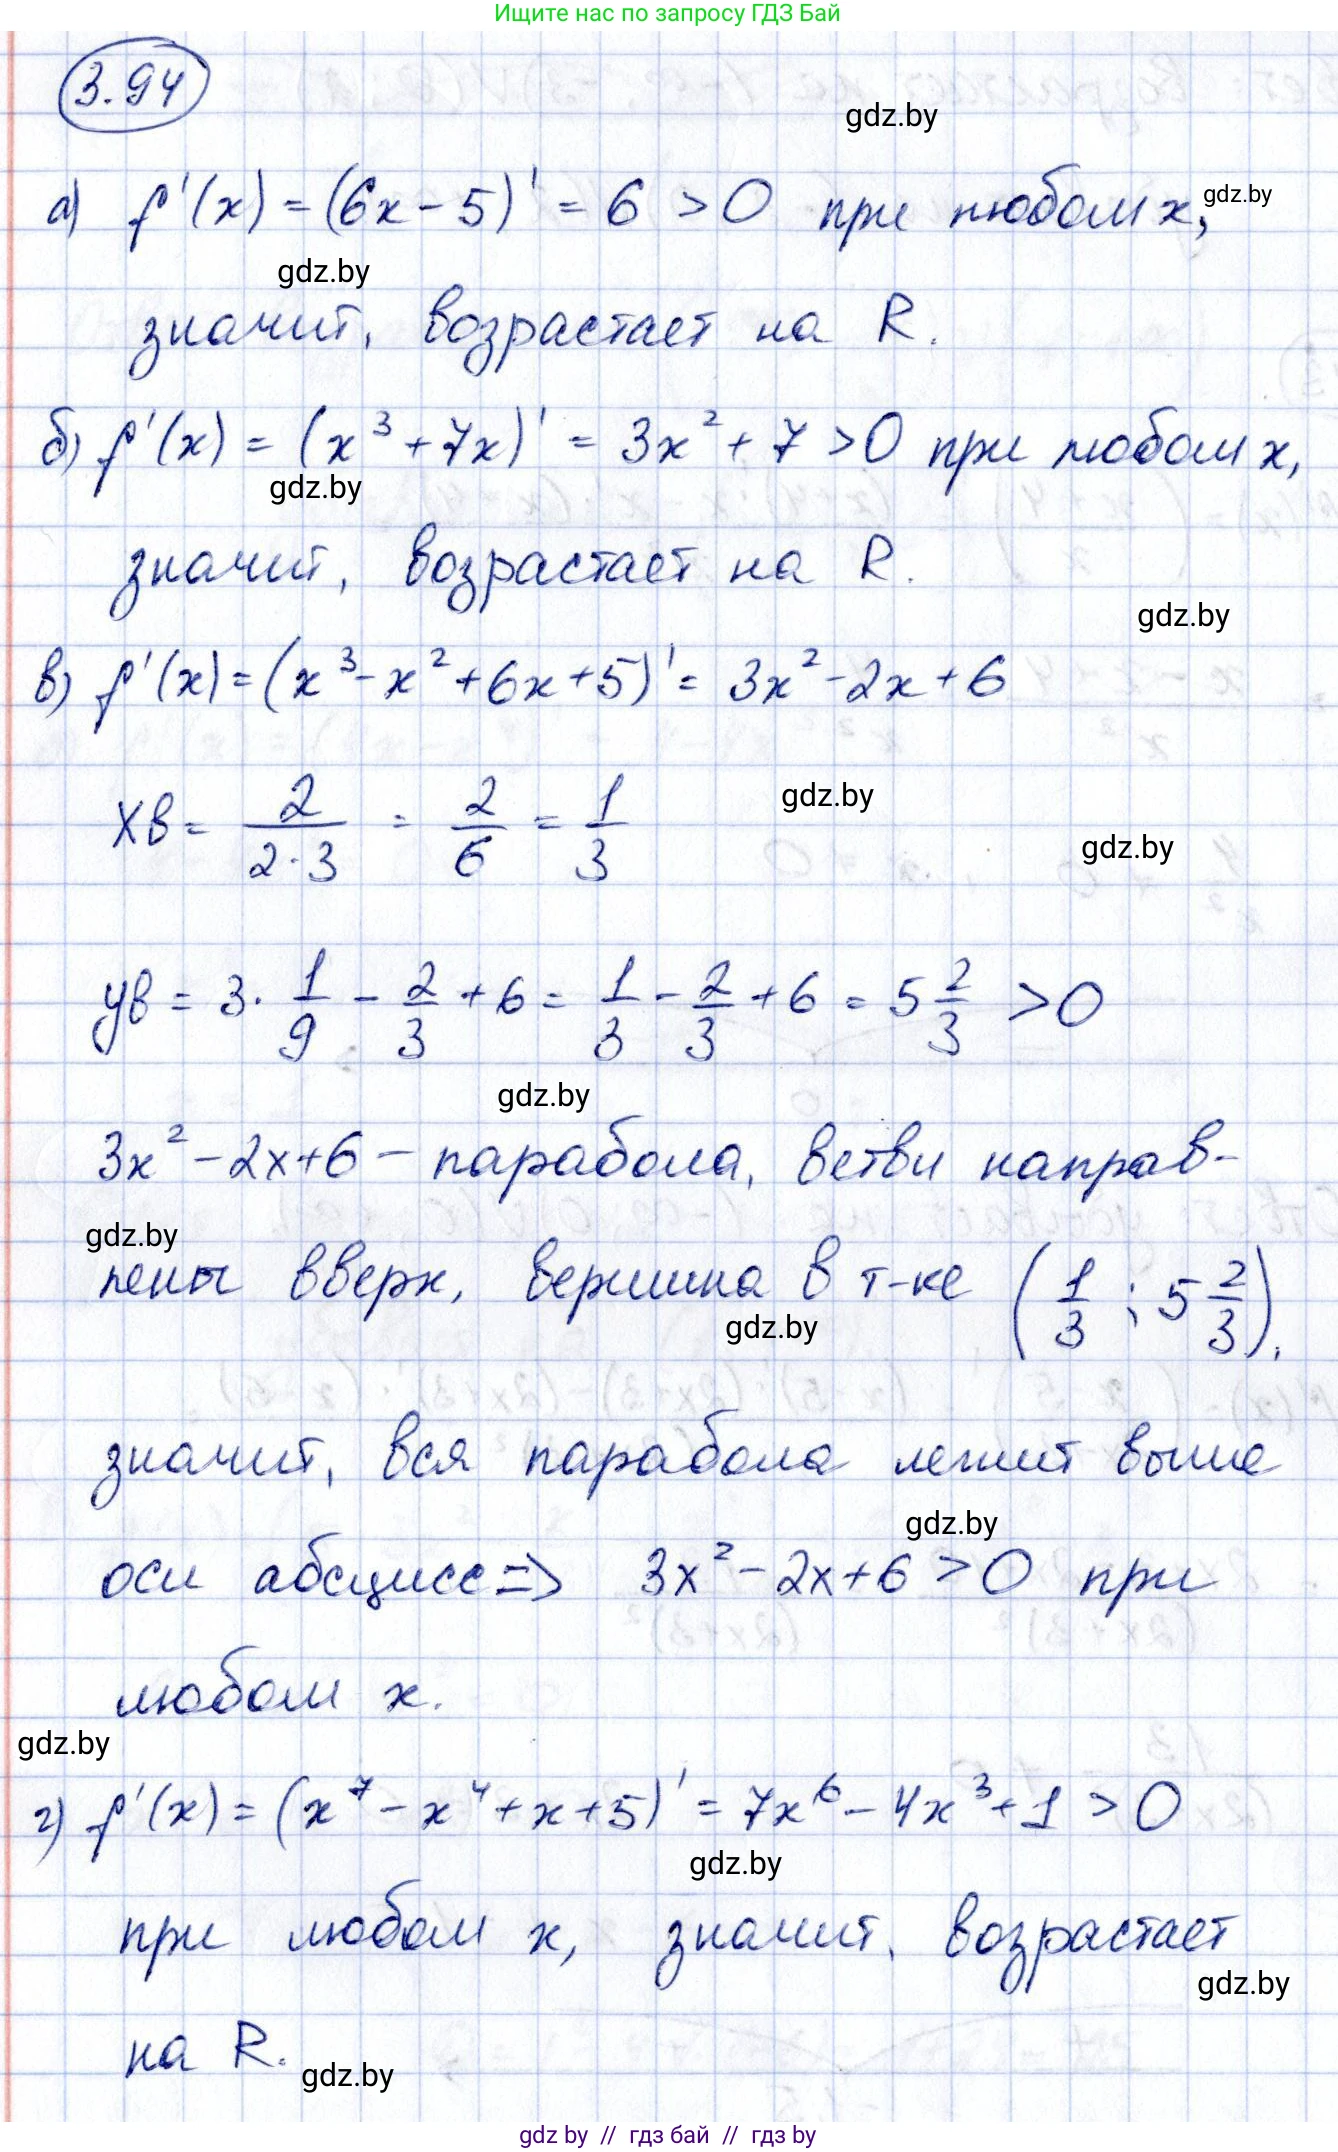 Ищите нас по запросу ГДЗ Бай
3.94
gdz.by
а) f'(x) = (6x - 5)' = 6 > 0 при любом x,
gdz.by
gdz.by
значит, возрастает на R.
б) f'(x) = (x³ + 7x)' = 3x² + 7 > 0 при любом x,
gdz.by
значит, возрастает на R.
gdz.by
в) f'(x) = (x³ - x² + 6x + 5)' = 3x² - 2x + 6
xв = 2/(2·3) = 2/6 = 1/3
gdz.by
gdz.by
yв = 3 · 1/9 - 2/3 + 6 = 1/3 - 2/3 + 6 = 5 2/3 > 0
gdz.by
3x² - 2x + 6 - парабола, ветви направ-
gdz.by
лены вверх, вершина в т-ке (1/3 ; 5 2/3),
gdz.by
значит, вся парабола лежит выше
gdz.by
оси абсцисс => 3x² - 2x + 6 > 0 при
любом x.
gdz.by
г) f'(x) = (x⁷ - x⁴ + x + 5)' = 7x⁶ - 4x³ + 1 > 0
gdz.by
при любом x, значит, возрастает
gdz.by
на R.
gdz.by
gdz by // гдз бай // гдз by